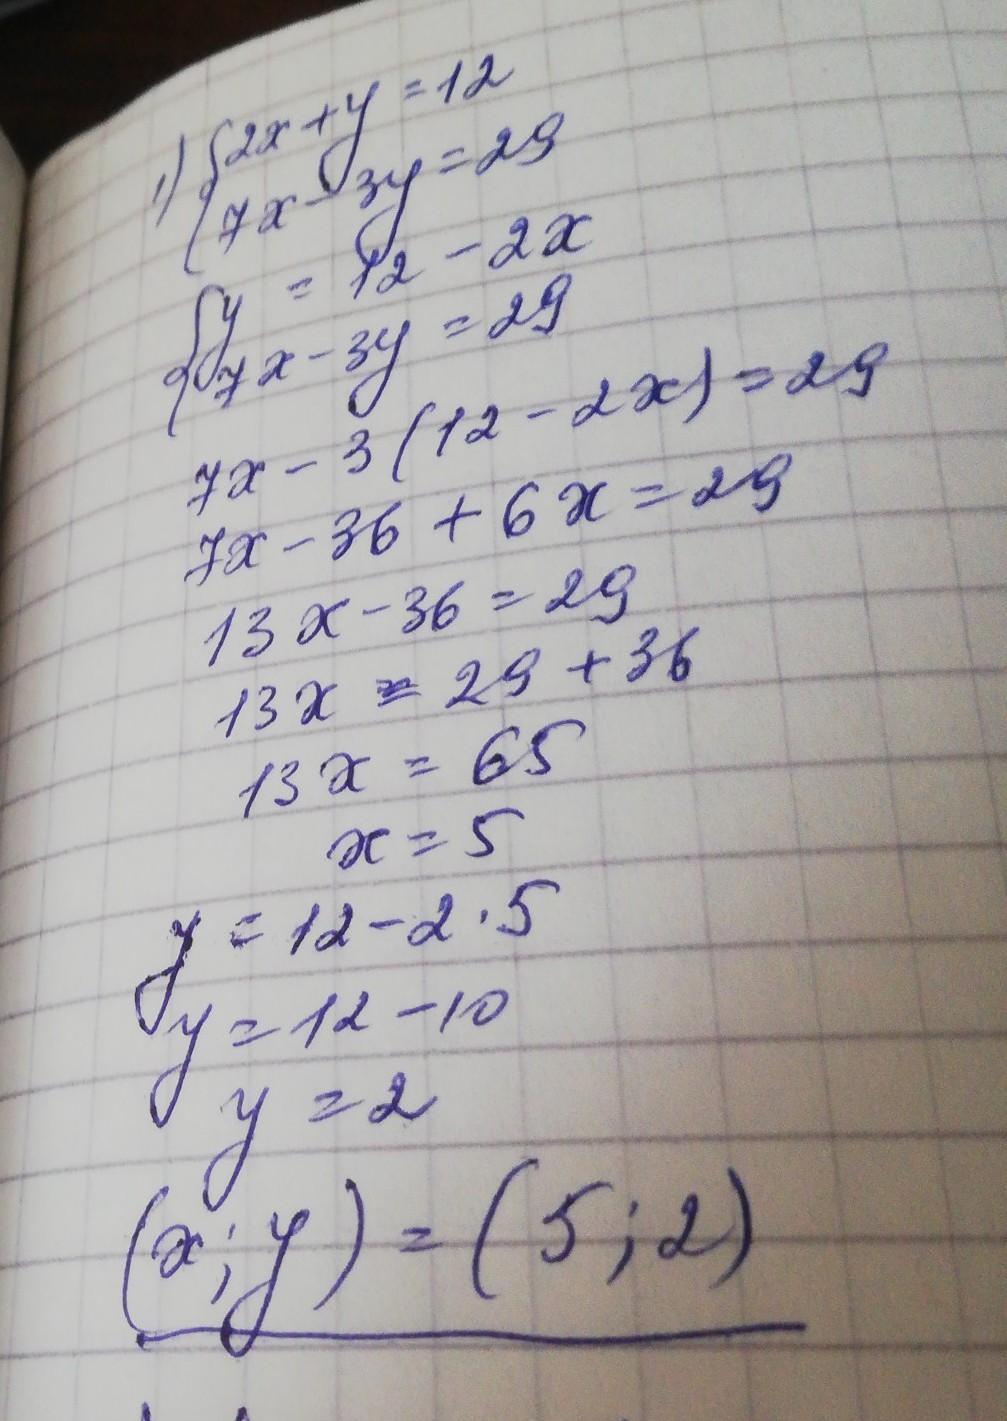 1) {2x + y = 12
{7x - 3y = 29
{y = 12 - 2x
{7x - 3y = 29
7x - 3(12 - 2x) = 29
7x - 36 + 6x = 29
13x - 36 = 29
13x = 29 + 36
13x = 65
x = 5
y = 12 - 2 · 5
y = 12 - 10
y = 2
(x; y) = (5; 2)